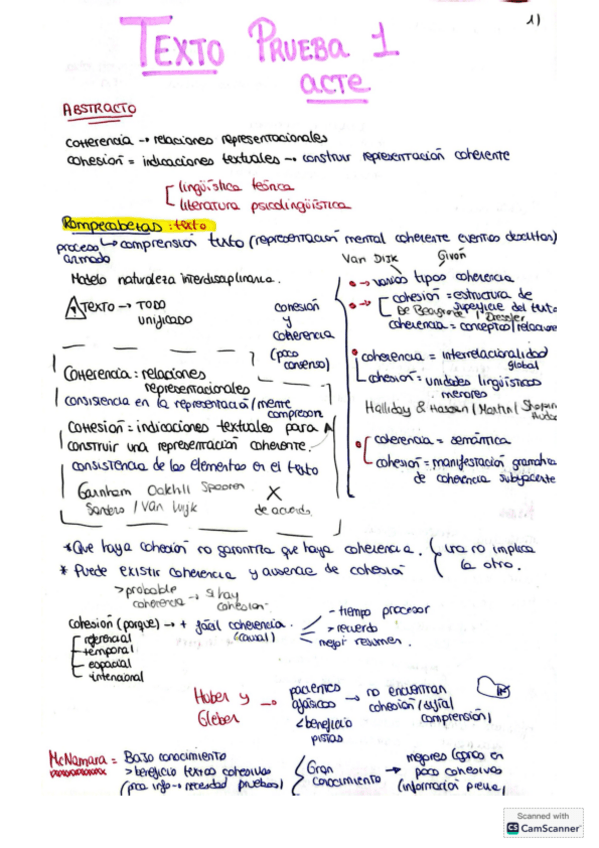 1)
TEXTO PRUEBA 1
acte
ABSTRACTO
Coherencia → relaciones representacionales
cohesión = indicaciones textuales → construir representación coherente
lingüística teórica
literatura psicolingüística
Rompecabezas : texto
proceso ↳ comprensión texto (representación mental coherente eventos descritos)
armado
Van Dijk Givón
Modelo naturaleza interdisciplinaria.
→ varios tipos coherencia
TEXTO → TODO
unificado
cohesión
y
coherencia
(poco
consenso)
cohesión = estructura de
superficie del texto
De Beaugrande / Dressler
coherencia = conceptos/relaciones
Coherencia : relaciones
representacionales
consistencia en la representación/mente
Cohesión = indicaciones textuales para
construir una representación coherente.
consistencia de los elementos en el texto
Garnham Oakhill Spooren
Sanders / Van Wijk
X
de acuerdo.
coherencia = interrelacionalidad
global
cohesión = unidades lingüísticas
menores
Halliday & Hassan / Martin /
coherencia = semántica
cohesión = manifestación
de coherencia subyacente
* Que haya cohesión no garantiza que haya coherencia.
* Puede existir coherencia y ausencia de cohesión
una no implica
la otra.
> probable
coherencia → si hay
cohesión.
Cohesión (porque) → + fácil coherencia.
(causal)
referencial
temporal
espacial
intencional
- tiempo procesar
> recuerdo
mejor resumen.
Huber y
Gleber
→ pacientes
afásicos
< beneficio
pistas
→ no encuentran
cohesión / señal
comprensión)
McNamara = Bajo conocimiento
> beneficio textos cohesivos
(poca info → necesidad pruebas)
Gran
conocimiento
→ mejores logros en
poco cohesivos
(información previa)
Scanned with
CS CamScanner